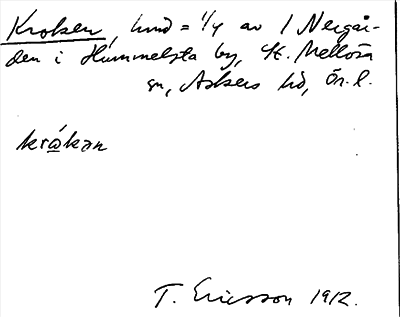 Kroken, lund = 1/4 av 1 Nergår-
den i Hummelsta by, St. Mellösa
sn, Askers hd, Ör. l.
kråkan
T. Ericsson 1912.